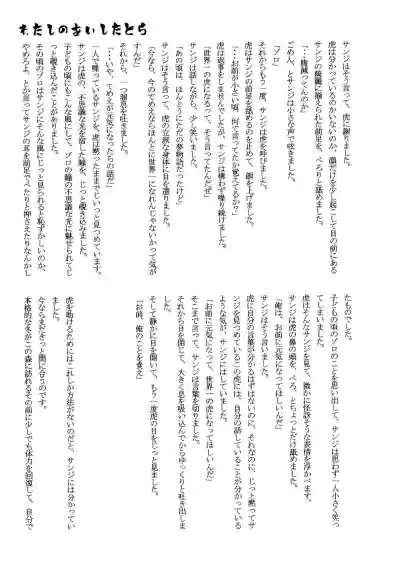 わたしのあいしたとら
サンジはそう言って、虎に謝りました。
虎は分かっているのかいないのか、顔だけを少し起こして目の前にある
サンジの綺麗に揃えられた前足を、ぺろりと舐めました。
ごめん、とサンジは小さな声で呟きました。
「…腹減ってんのか」
「ゾロ」
それからもう一度、サンジは虎を呼びました。
虎はサンジの前足を舐めるのを止めて、顔を上げました。
「…お前が小さい頃、何て言ってたか覚えてるか?」
虎は返事をしませんでしたが、サンジは構わず喋り続けました。
「世界一の虎になるって、そう言ってたんだぜ」
サンジは話しながら、少し笑いました。
「あの頃は、ほんとうにただの夢物語だったけど」
サンジはそう言って、虎の立派な身体に目を遣りました。
「今なら、今のてめえならほんとに世界一になれんじゃないかって気が
すんだ」
それから、一つ溜息を吐きました。
「…いや、てめえが元気になったらの話だ」
一人で喋っているサンジを、虎は黙ったままでじいっと見つめています。
サンジは虎の、不思議な光を宿した瞳を、じっと覗き込みました。
子どもの頃にもこんな風にして、ゾロの瞳の不思議な光に魅せられてじ
っと覗き込んだことがありました。
その頃のゾロはサンジにそんな風にじっと見られると恥ずかしいのか、
やめろよ、とか言ってサンジの耳を前足でぺたりと押さえたりなんかし
たものでした。
子どもの頃のゾロのことを思い出して、サンジは思わず一人小さく笑っ
てしまいました。
虎はそんなサンジを見て、微かに怪訝そうな表情を浮かべます。
サンジは虎の鼻の頭を、ぺろ、とちょっとだけ舐めました。
「俺は、お前に元気になってほしいんだ」
サンジはそう言いました。
虎に自分の言葉が分かるはずはないのに、それなのに、じっと黙ってサ
ンジを見つめているこの虎には、自分の話していることが分かっている
ような気が、サンジにはしていました。
「お前に元気になって、世界一の虎になってほしいんだ」
そこまで言って、サンジは言葉を切りました。
それから目を閉じて、大きく息を吸い込んでからゆっくりと吐き出しま
した。
そして静かに目を開いて、もう一度虎の目をじっと見ました。
「お前、俺のことを食え」
虎を助けるためにはこれしか方法がないのだと、サンジには分かってい
ました。
今ならまだきっと間に合うのです。
本格的な冬がこの森に訪れるその前に少しでも体力を回復して、自分で